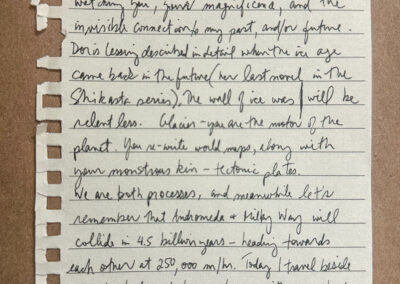 watching you, your magnificence, and the
invisible connection to my past, and/or future.
Doris Lessing described in detail when the ice age
came back in the future (her last novel in the
Shikasta series). The wall of ice was / will be
relentless. Glacier - you are the motor of the
planet. You re-write world maps, along with
your monstrous kin - tectonic plates.
We are both processes, and meanwhile let's
remember that Andromeda & Milky Way will
collide in 4.5 billion years - heading towards
each other at 250,000 m/hr. Today I travel beside